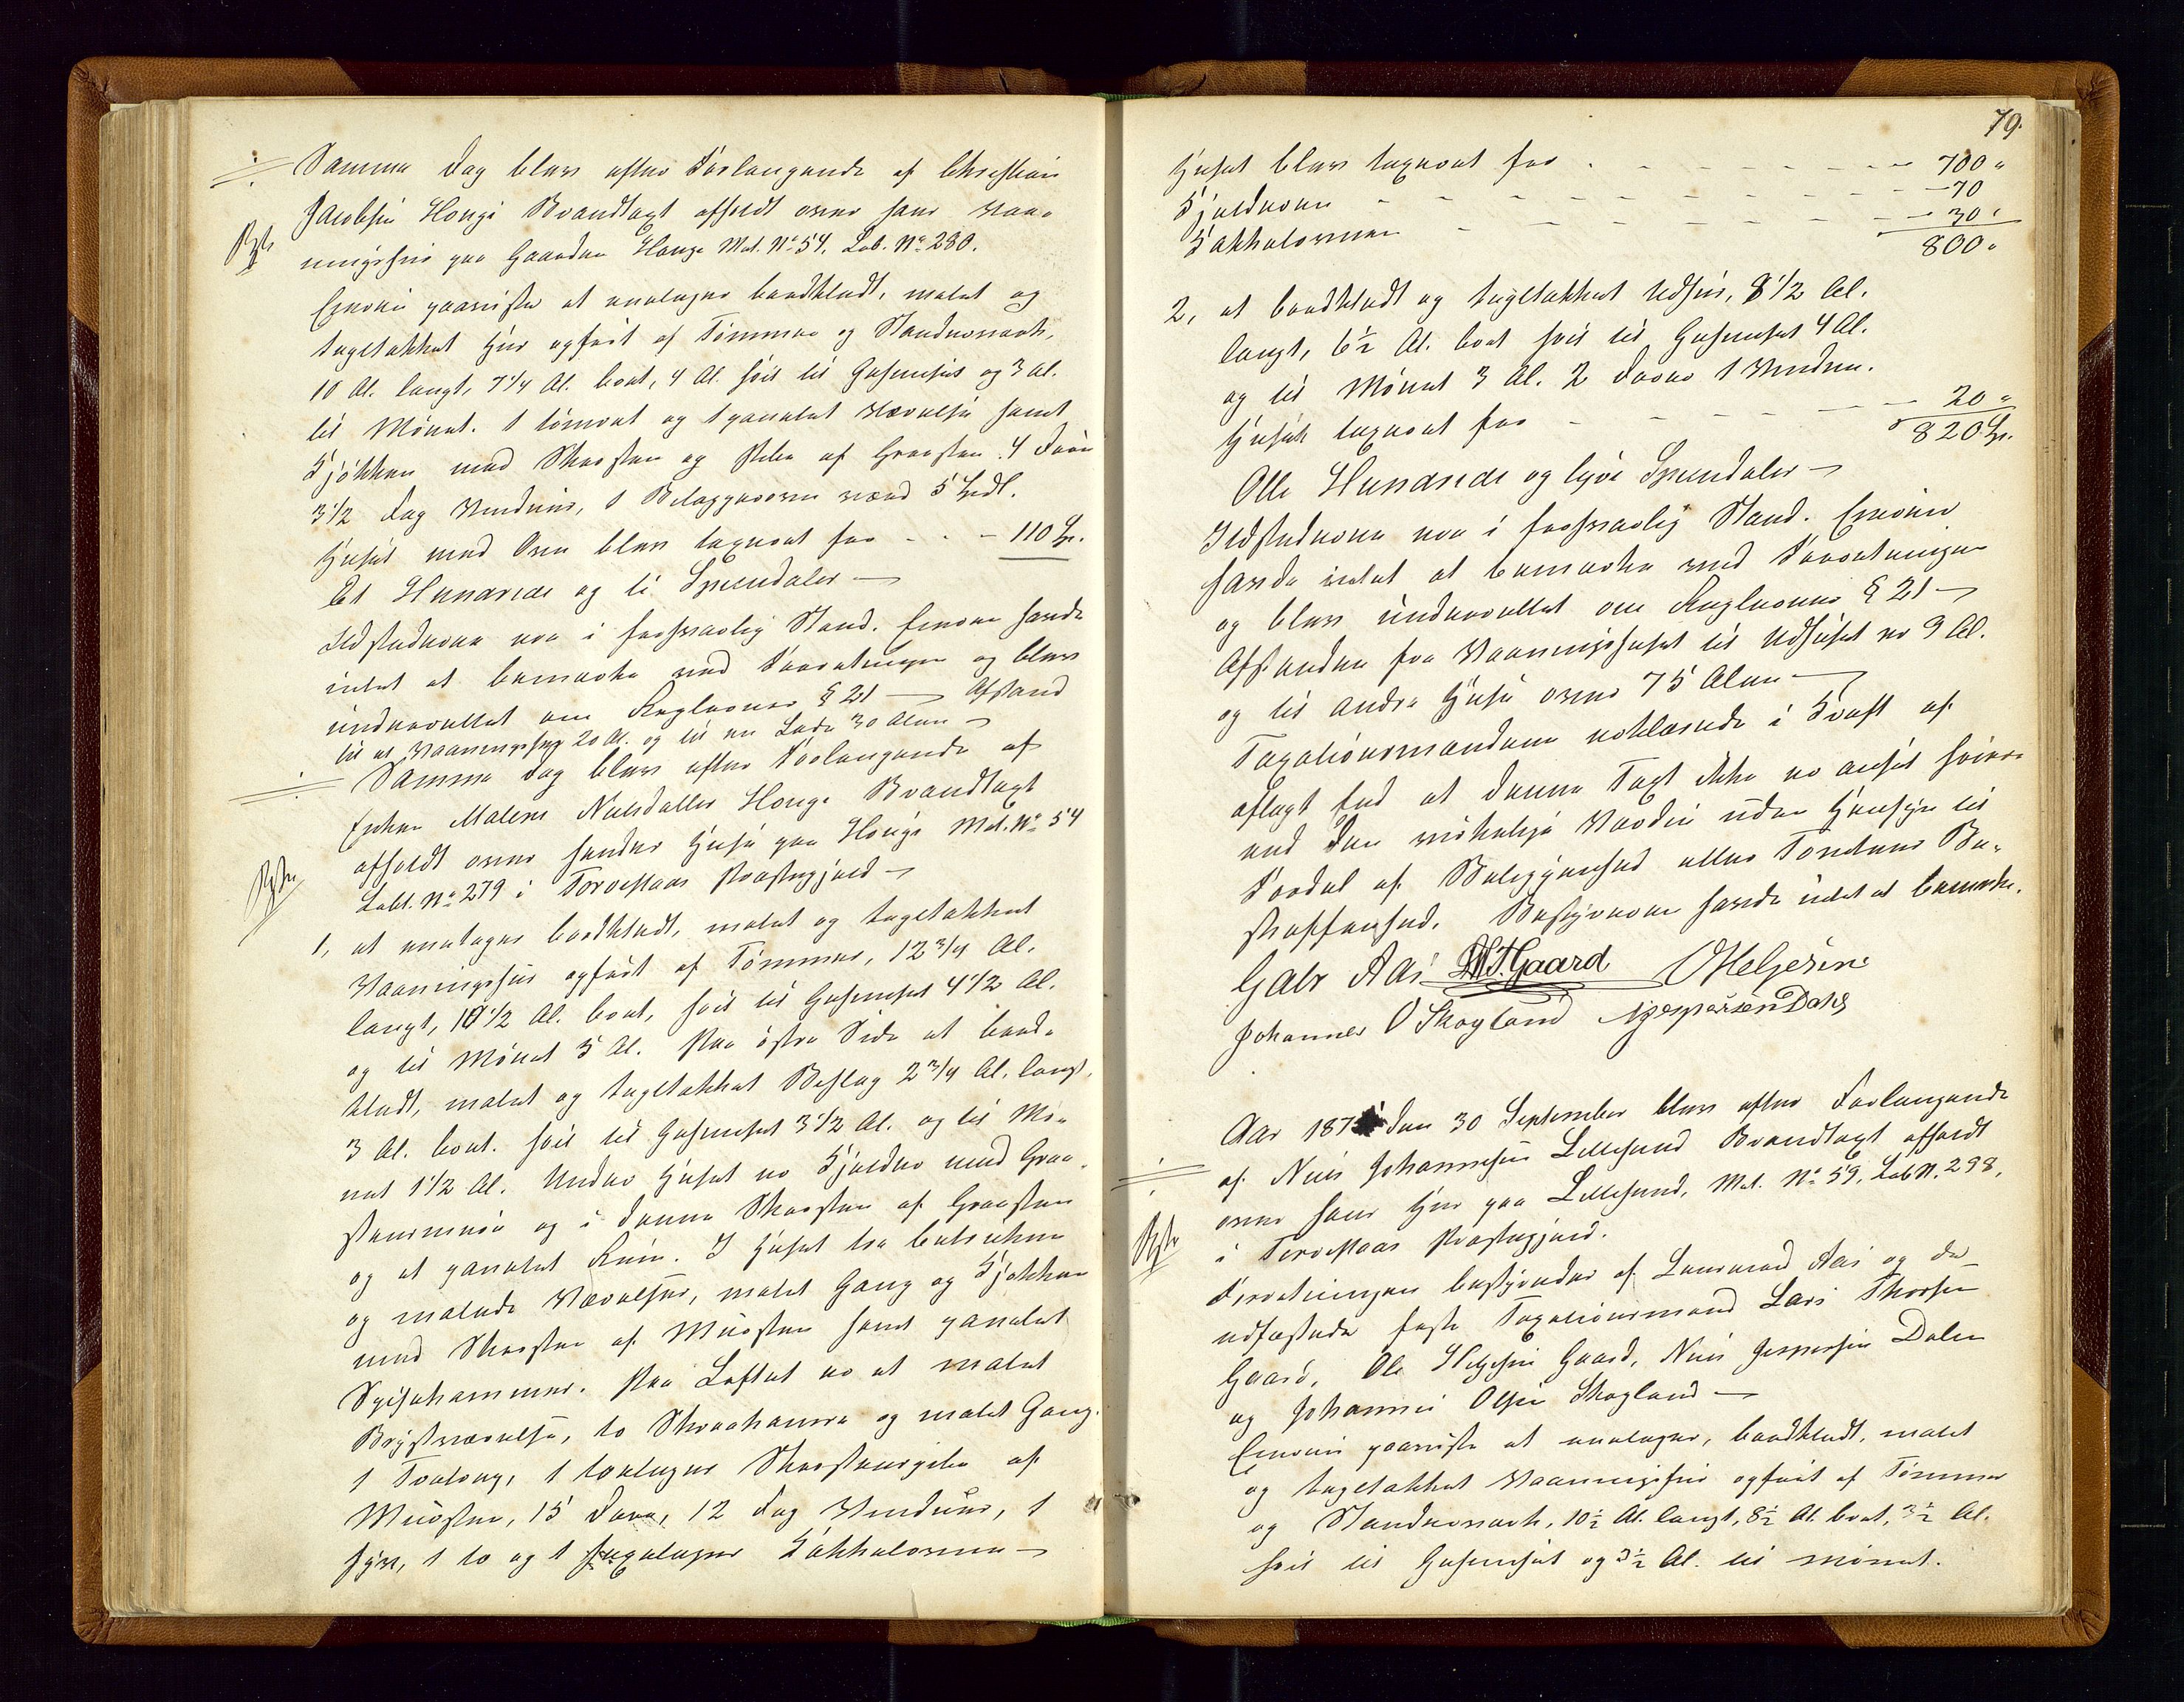 Samme Dag blev efter Forlangende af Christian
Jacobsen Hauge Brandtaxt afholdt over hans Vaa-
ningshus paa Gaarden Hauge Mat. No 54. Løb. No 280.
Eieren paaviste et enetages bordklædt, malet og
tagltækket Hus opført af Tømmer og Standerværk,
10 Al. langt, 7 1/4 Al. bredt, 4 Al. høit til Gesimset og 3 Al.
til Mønet. 1 tømret og 1 panelet Værelse samt
Kjøkken med Skorsten og Pibe af Graasten. 4 Døre
3 1/2 Fag Vinduer, 1 Bilæggerovn værd 5 Spdl.
Huset med Ovn blev taxeret for - - - 110 Sp.
Et Hundrede og ti Speciedaler —
Ildstederne var i forsvarlig Stand. Eieren havde
intet at bemærke ved Forretningen og blev
underrettet om Reglernes § 21 — Afstand
til et Vaaningshus 20 Al. og til en Lade 30 Alen —
Samme Dag blev efter Forlangende af
Enken Malene Nielsdatter Hauge Brandtaxt
afholdt over hendes Huse paa Hauge Mat. No 54
Løbl. No 279 i Torvestad Præstegjeld —
1, et enetages bordklædt, malet og tagltækket
Vaaningshus opført af Tømmer, 12 3/4 Al.
langt, 10 1/2 Al. bredt, høit til Gesimset 4 1/2 Al.
og til Mønet 5 Al. Paa østre Side et bord-
klædt, malet og tagltækket Beslag 2 3/4 Al. langt,
3 Al. bredt. høit til Gesimset 3 1/2 Al. og til Mø-
net 1 1/2 Al. Under Huset er Kjelder med Graa-
stensmure og i denne Skorsten af Graasten
og et panelet Rum. I Huset tre betrukne
og malede Værelser, malet Gang og Kjøkken
med Skorsten af Mursten samt panelet
Spisekammer. Paa Loftet er et malet
Brystværelse, to Skraakamre og malet Gang.
1 Træloug, 1 Skorstenspibe af
Mursten, 15 Døre, 12 Fag Vinduer, 1
1 to og 1 Kakkelovne —
79.
Huset blev taxeret for - - - - - - 700 "
Kjelderen - - - - - - 70
Kakkelovnen - - - - - - 30 "
800 "
2, et bordklædt og tagltækket Udhus, 8 1/2 Al.
langt, 6 1/2 Al. bredt høit til Gesimset 4 Al.
og til Mønet 3 Al. 2 Døre 1 Vindue.
Huset taxeret for - - - - - 20 "
820 Sp.
Otte Hundrede og tyve Speciedaler —
Ildstederne var i forsvarlig Stand. Eieren
havde intet at bemærke ved Forretningen
og blev underrettet om Reglernes § 21 —
Afstanden fra Vaaningshuset til Udhuset er 9 Al.
og til andre Huse over 75 Alen —
Taxationsmændene erklærede i Kraft af
aflagt Eed at denne Taxt ikke er ansat høiere
end den virkelige Værdi uden Hensyn til
Fordel af Beliggenhed eller Tomtens Be-
skaffenhed. Bestyreren havde intet at bemærke.
Gabr Aas L. T. Gaard O Helgesen
Johannes O Skogland N Jespersen Dale
Aar 1875 den 30 September blev efter Forlangende
af Niels Johannesen Lillesund Brandtaxt afholdt
over hans Hus paa Lillesund, Mat. No 59. Løb N. 298,
i Torvestad Præstegjeld.
Forretningen bestyredes af Lensmand Aas og de
udsatte faste Taxationsmænd Lars Thorsen
Gaard, Ole Helgesen Gaard, Niels Jespersen Dale
og Johannes Olsen Skogland —
Eieren paaviste et enetages, bordklædt, malet
og tagltækket Vaaningshus opført af Tømmer
og Standerværk, 10 1/2 Al. langt, 8 1/2 Al. bredt, 3 1/2 Al.
høit til Gesimset og 3 1/2 Al. til Mønet.